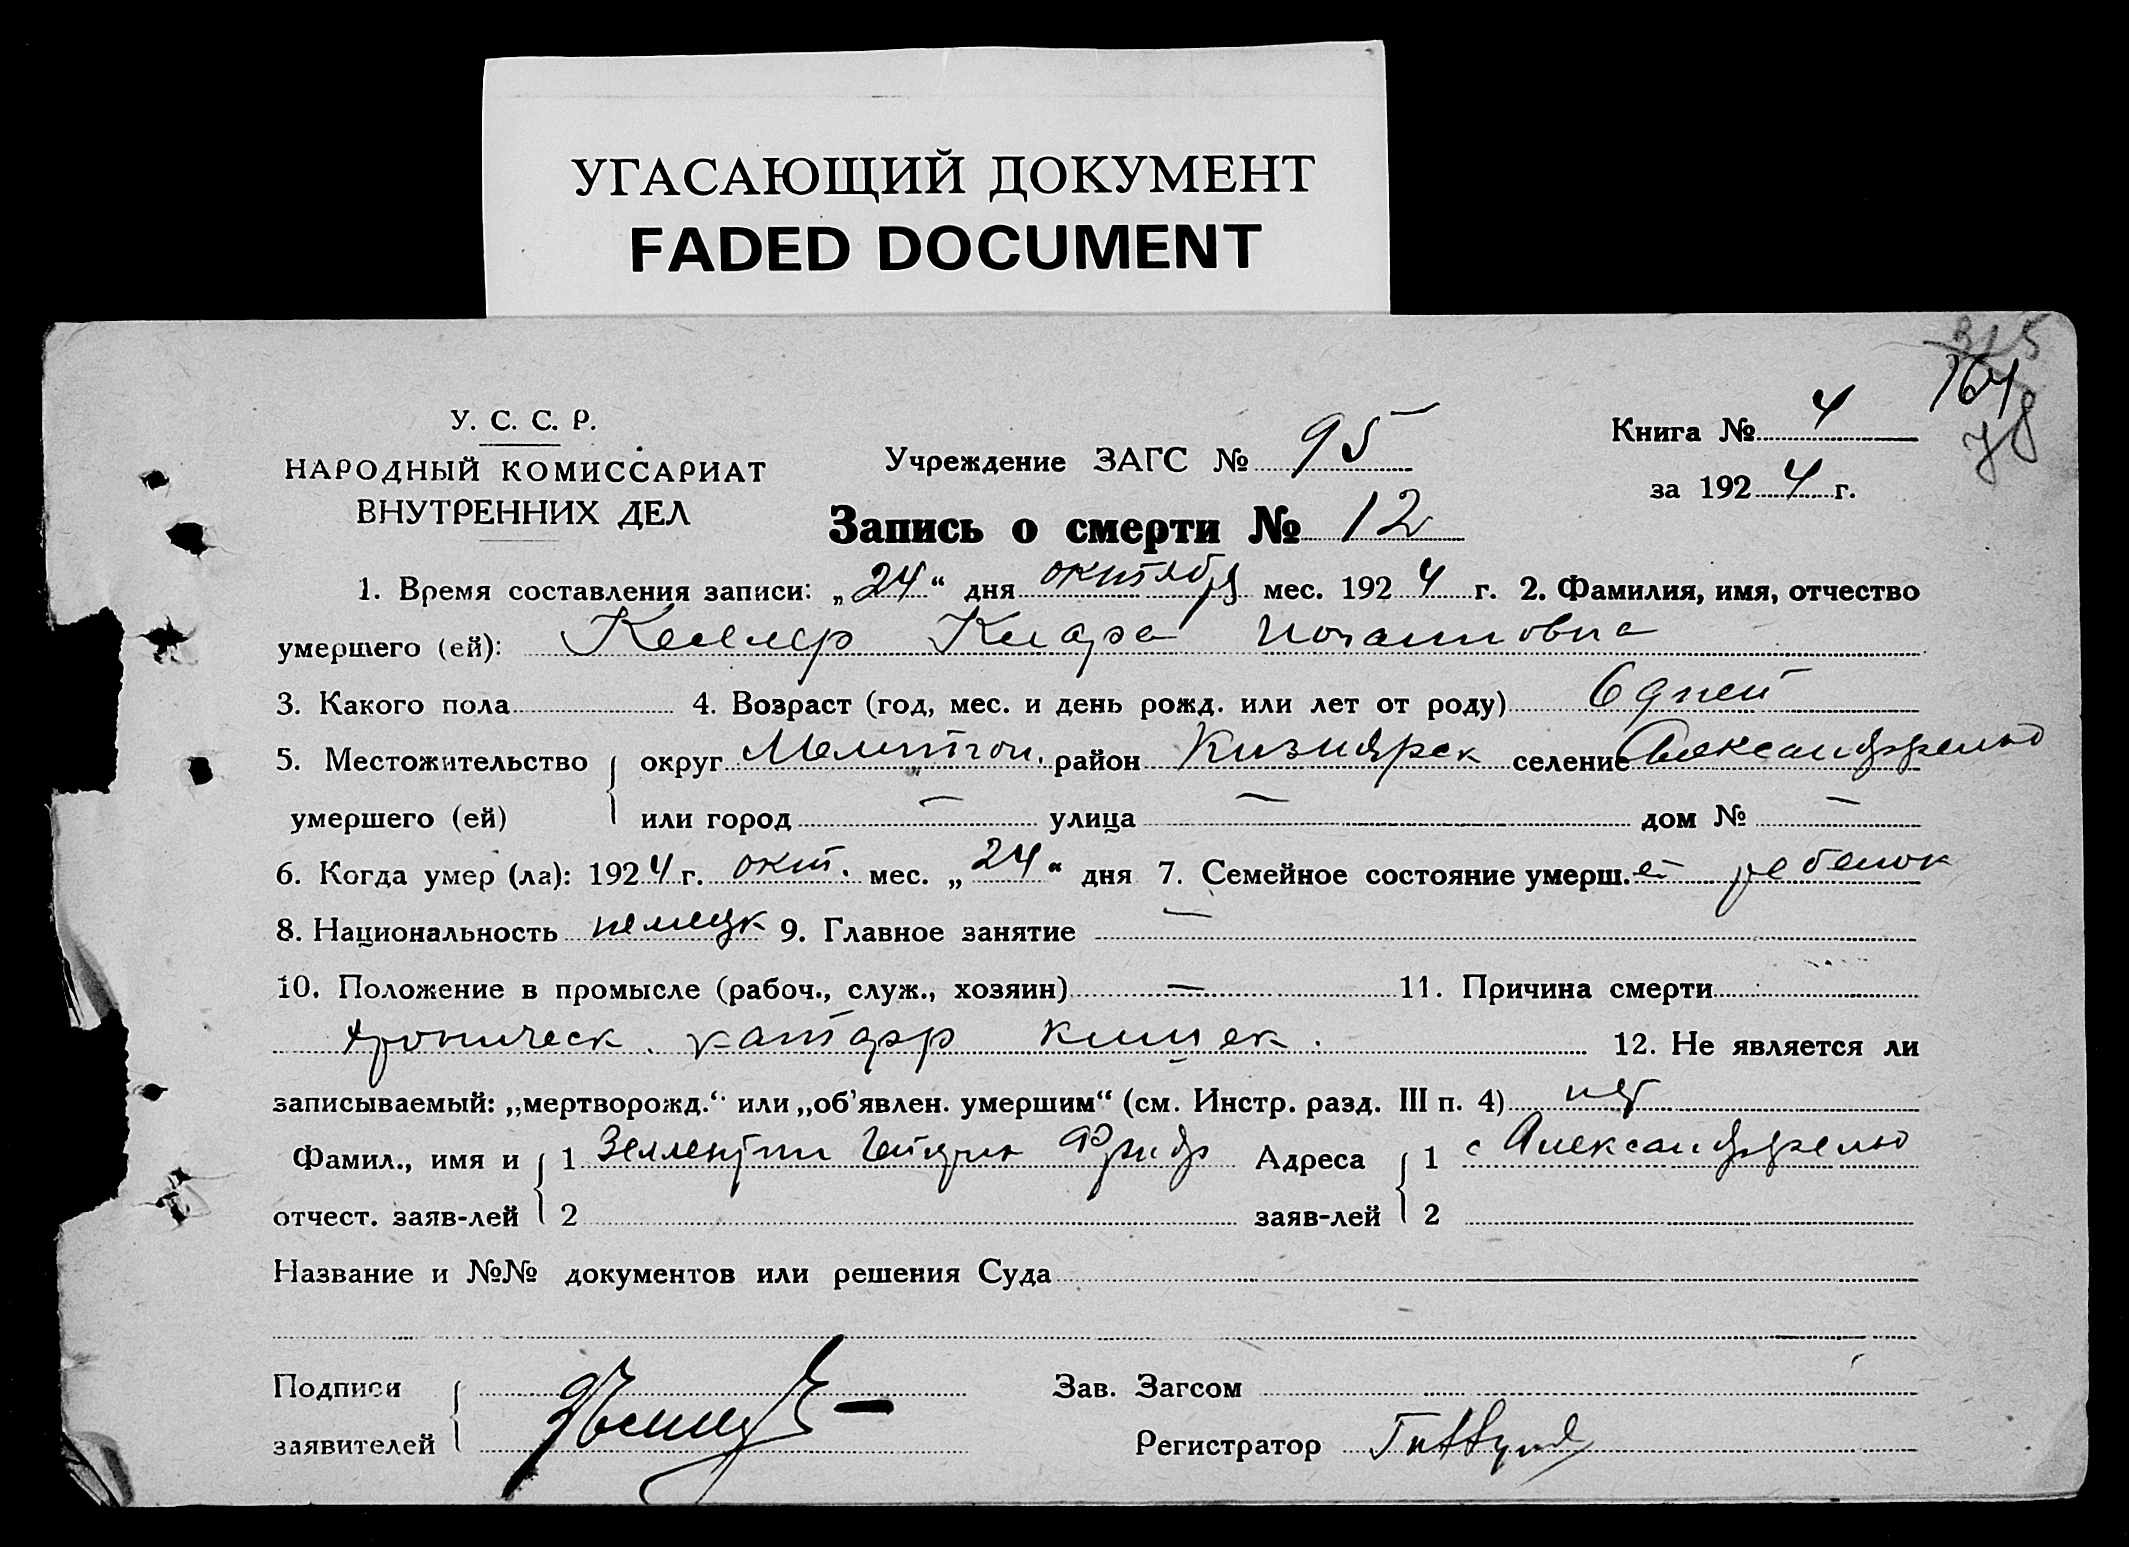 УГАСАЮЩИЙ ДОКУМЕНТ
FADED DOCUMENT
315
164
78
У. С. С. Р.
НАРОДНЫЙ КОМИССАРИАТ
ВНУТРЕННИХ ДЕЛ
Учреждение ЗАГС № 95
Книга № 4
за 1924 г.
Запись о смерти № 12
1. Время составления записи: „24“ дня октября мес. 1924 г. 2. Фамилия, имя, отчество
умершего (ей): Келлер Клара Иоганновна
3. Какого пола 4. Возраст (год, мес. и день рожд. или лет от роду) 6 дней
5. Местожительство округ Мелитоп. район Кизиярск селение Александрфельд
умершего (ей) или город — улица — дом № —
6. Когда умер (ла): 1924 г. окт. мес. „24“ дня 7. Семейное состояние умерш. ей ребенок
8. Национальность немецк 9. Главное занятие —
10. Положение в промысле (рабоч., служ., хозяин) — 11. Причина смерти
хроническ. катарр кишек. 12. Не является ли
записываемый: „мертворожд.“ или „об'явлен. умершим“ (см. Инстр. разд. III п. 4) нет
Фамил., имя и 1 Адреса 1 с Александрфельд
отчест. заяв-лей 2 заяв-лей 2
Название и №№ документов или решения Суда
Подписи Зав. Загсом
заявителей Регистратор